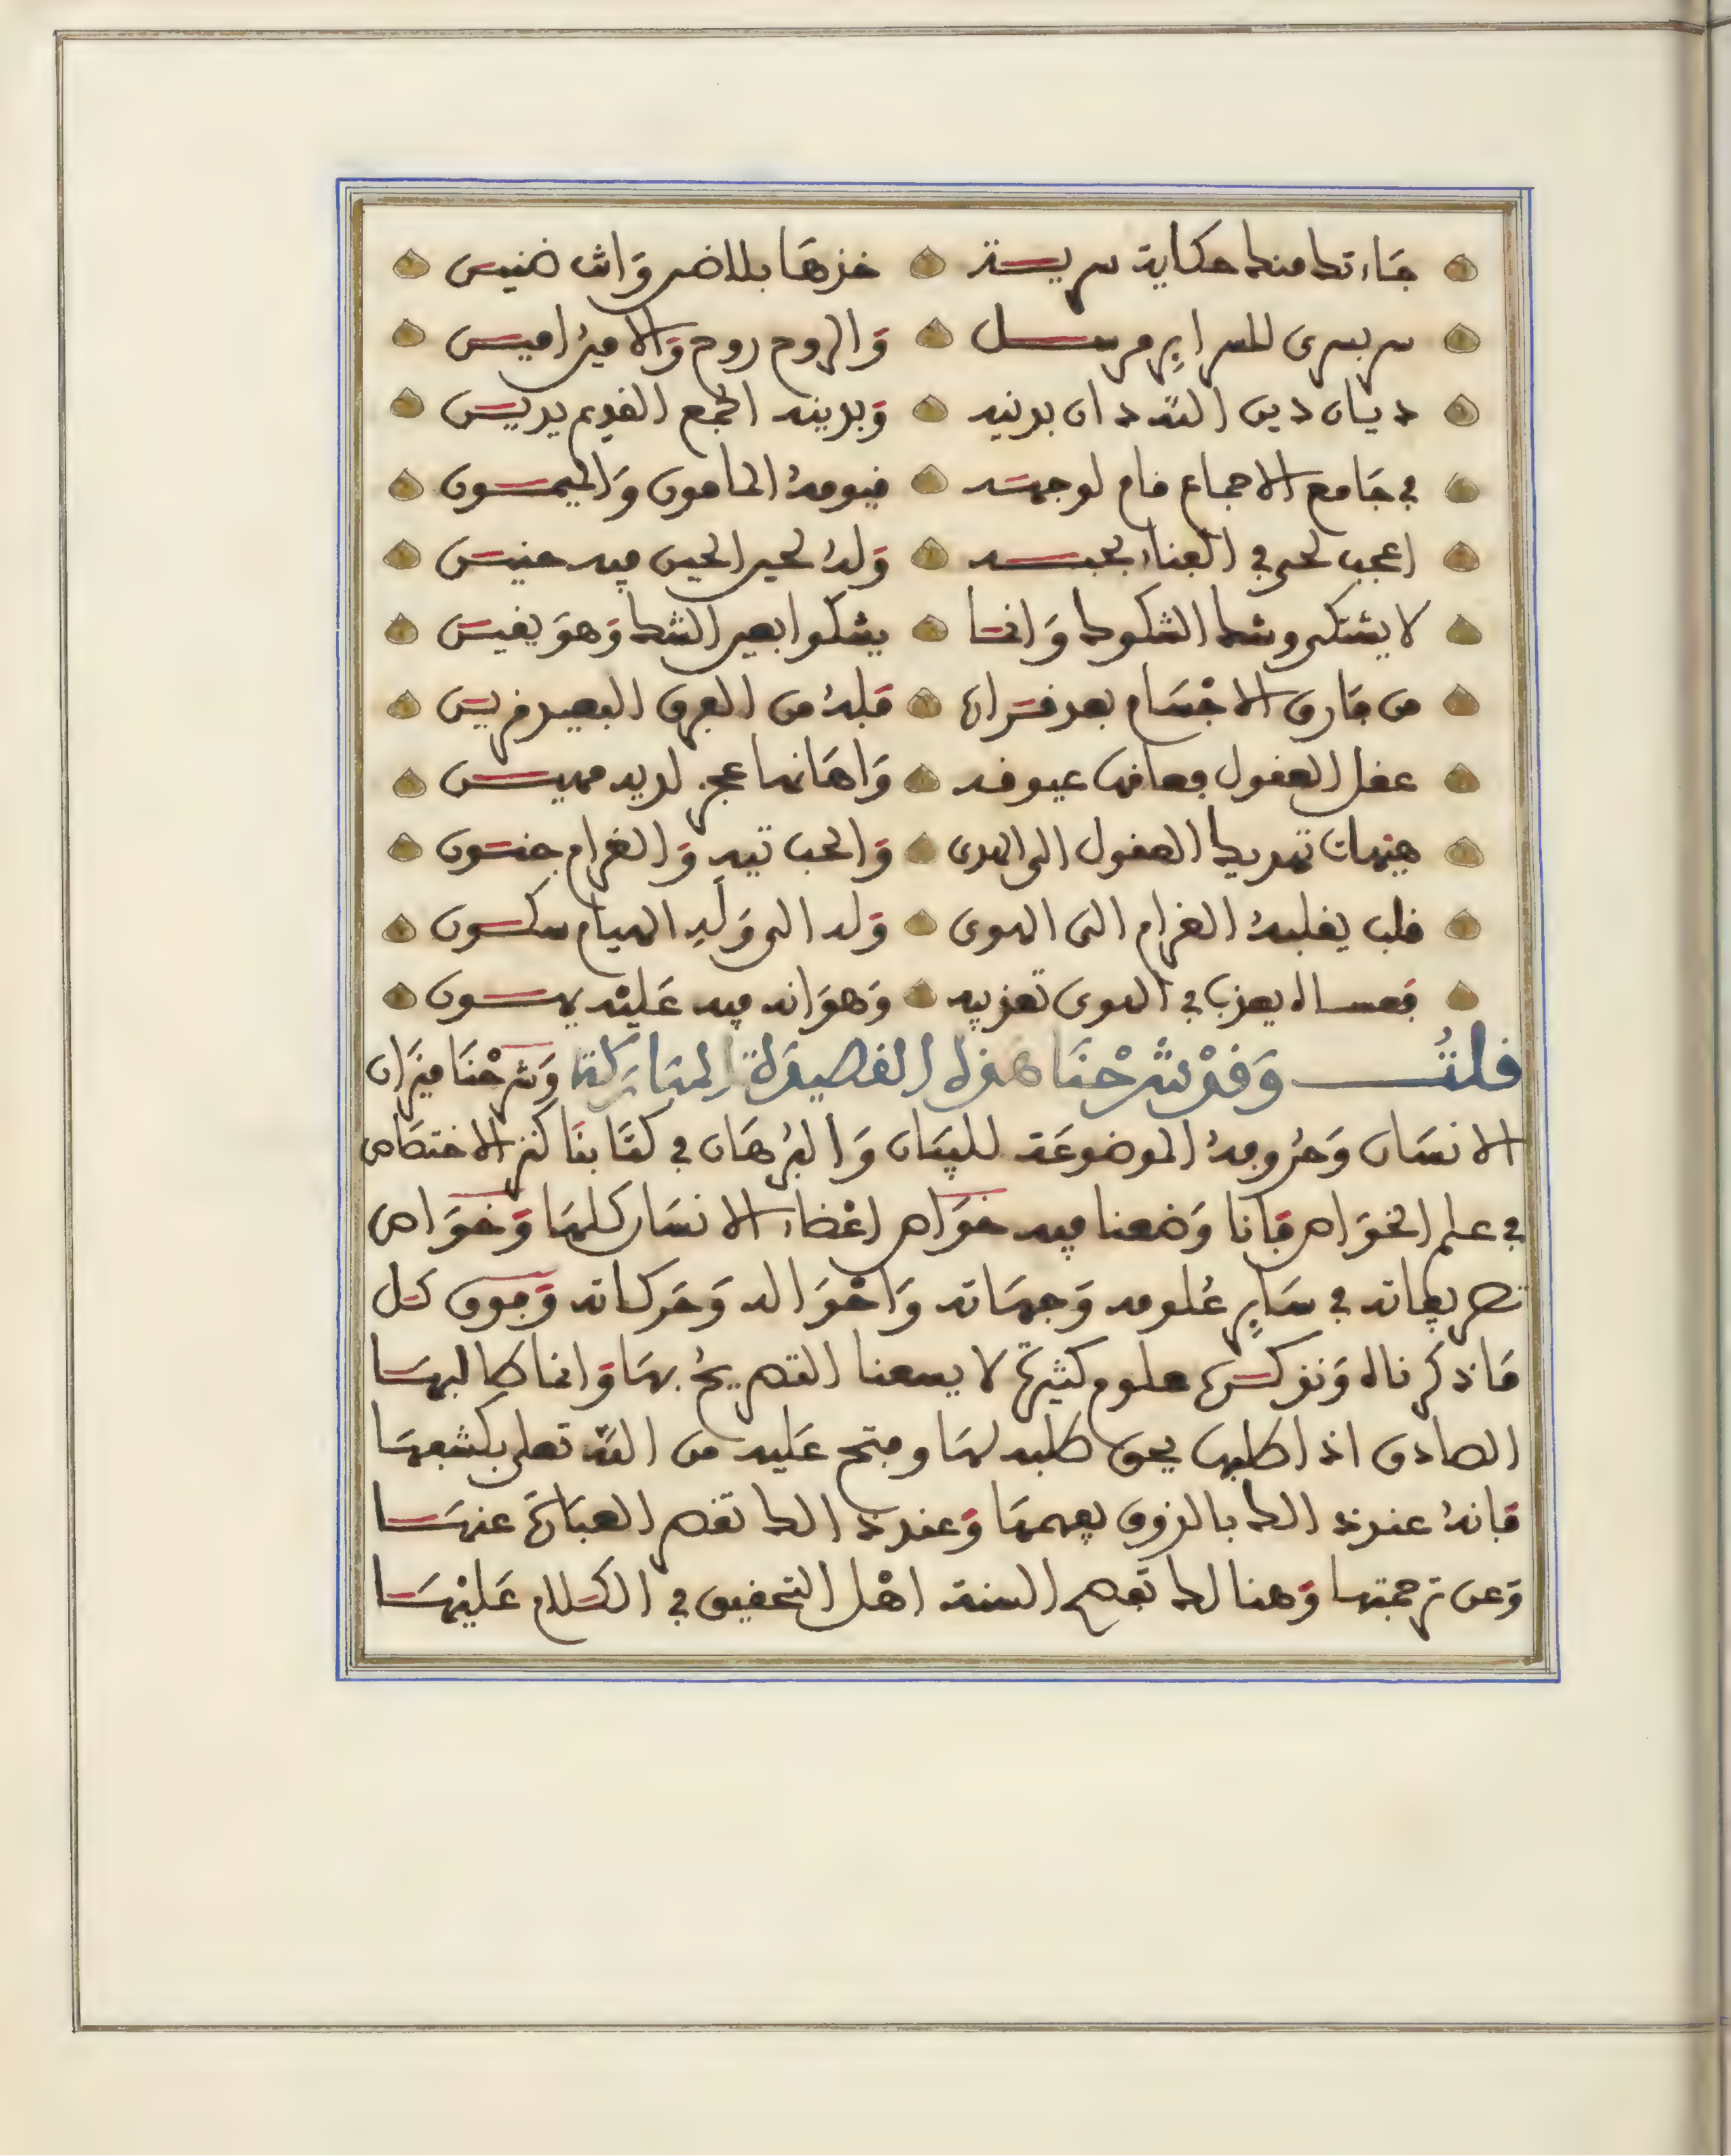 جاءتك منك حكاية سرية خذها بلا ضر وانت ضنين
سر يسرى للسراير مرسل والروح روح والامين امين
ديان دين الله دان بدينه وبدينه الجمع القديم يدين
في جامع الاجماع قام لوجهه قيومه المامون والميمون
اعجب لحى في الفناء بحبه وله لحين الحين فيه حنين
لا يشتكى وشك الشكوك وانما يشكوا بعين الشك وهو يقين
من فارق الاجسام بعد قرانها قبله من الفرق البعيد قرين
عقل العقول فعافها عيوفه واهانها عجز لديه مهين
هيهات تهديك العقول الى الهدى والحب تيه والغرام جنون
قلب يقلبه الغرام الى الهوى وله الى وله الهيام سكون
فعساه يعذب في الهوى تعذيبه وهوانه فيه عليه يهون
قلت وقد شرحنا هذه القصيدة المباركة وشرحنا ميزان
الانسان وحروفه الموضوعة للبيان والبرهان في كتابنا كنز الاختصاص
في علم الخواص فانا وضعنا فيه خواص اعضاء الانسان كلها وخواص
تصريفاته في ساير علومه وجهاته واحواله وحركاته وفوق كل
ما ذكرناه ونذكره علوم كثيرة لا يسعنا التصريح بها وانما طالبها
الصادق اذا طلبها بحق طلبه لها وفتح عليه من الله تعلى بكشفها
فانه عند ذالك بالذوق يفهمها وعند ذالك تقصر العبارة عنها
وعن ترجمتها وهنالك تفصح السنة اهل التحقيق في الكلام عليها